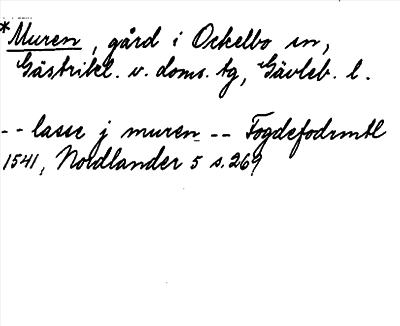 *Muren, gård i Ockelbo sn,
Gästrikl. v. doms. tg, Gävleb. l.
-- lasse j muren -- Fogdefodrmtl
1541, Nordlander 5 s. 269